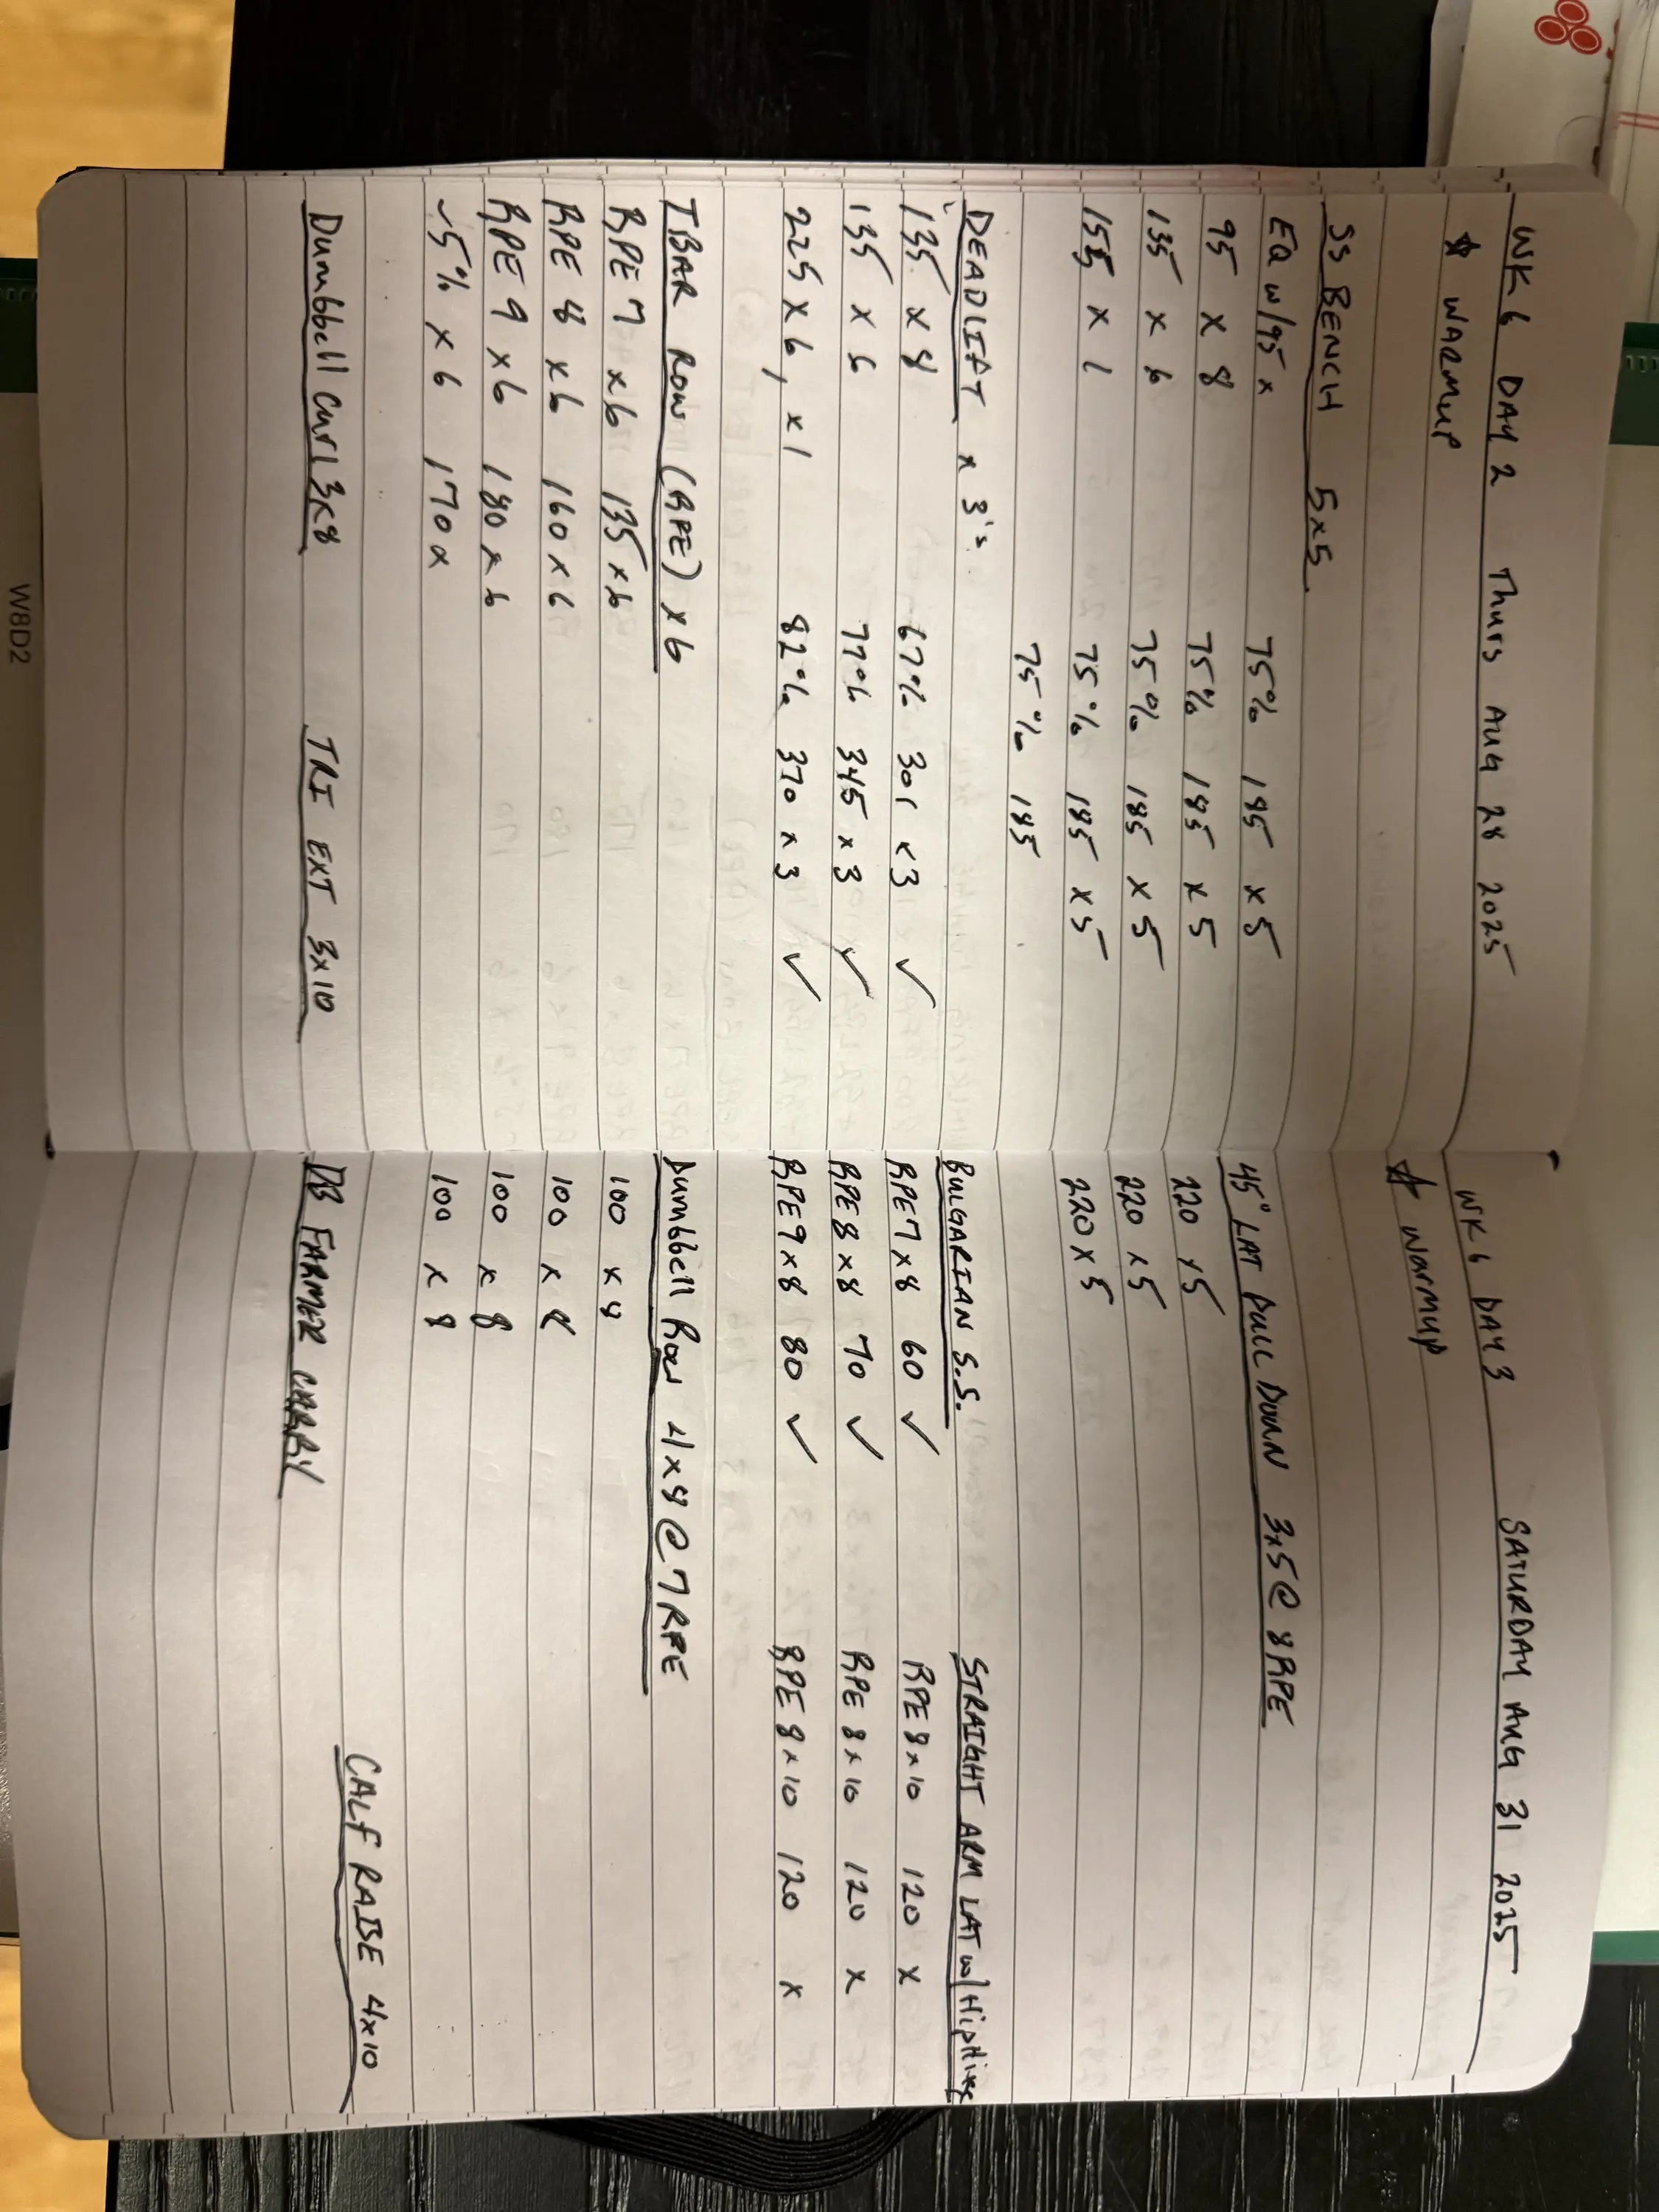 WK 6 DAY 2 Thurs AUG 28 2025
☆ WARMUP
SS BENCH 5x5
EQ w/95 x 75% 185 x 5
95 x 8 75% 185 x 5
135 x 6 75% 185 x 5
155 x 1 75% 185 x 5
75% 185
DEADLIFT x 3's
135 x 8 67% 301 x 3 ✓
135 x 6 77% 345 x 3 ✓
225 x 6, x 1 82% 370 x 3 ✓
TBAR ROW (RPE) x 6
RPE 7 x 6 135 x 6
RPE 8 x 6 160 x 6
RPE 9 x 6 180 x 6
5% x 6 170 x
Dumbbell Curl 3x8 TRI EXT 3x10
WK 6 DAY 3 SATURDAY AUG 31 2025
☆ WARMUP
45° LAT PULL DOWN 3x5 @ 8 RPE
220 x 5
220 x 5
220 x 5
BULGARIAN S.S. STRAIGHT ARM LAT w/ Hip Hinge
RPE 7 x 8 60 ✓ RPE 8 x 10 120 x
RPE 8 x 8 70 ✓ RPE 8 x 10 120 x
RPE 9 x 8 80 ✓ RPE 8 x 10 120 x
Dumbbell Row 4 x 8 @ 7 RPE
100 x 8
100 x 8
100 x 8
100 x 8
DB FARMER CARRY CALF RAISE 4x10
W8D2